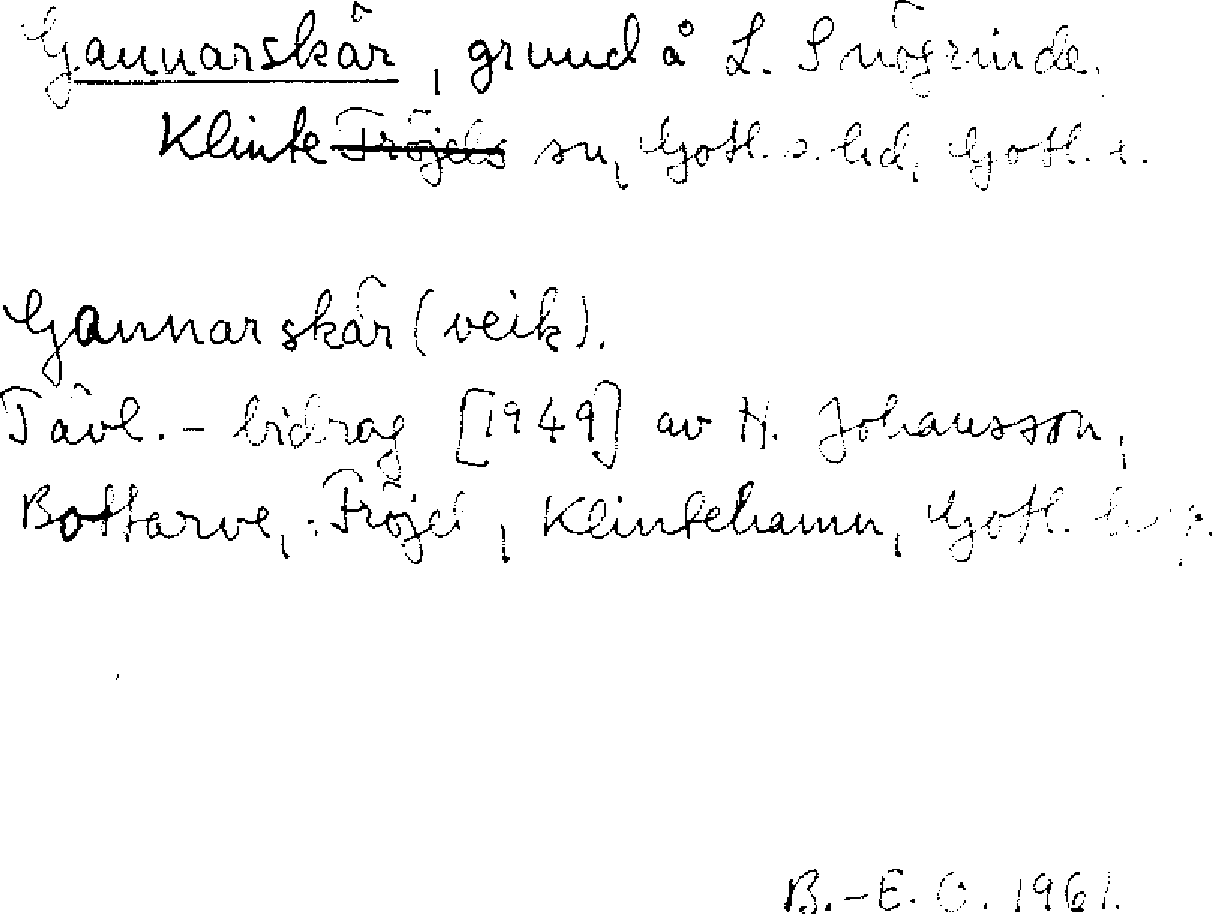 Gannarskär, grund å L. Snögrinde,
Klinte Fröjels sn, Gotl. s. hd, Gotl. l.
Gannarskär (veik).
Tävl.-bidrag [1949] av H. Johansson,
Bottarve, Fröjel, Klintehamn, Gotl.
B.-E. O. 1961.